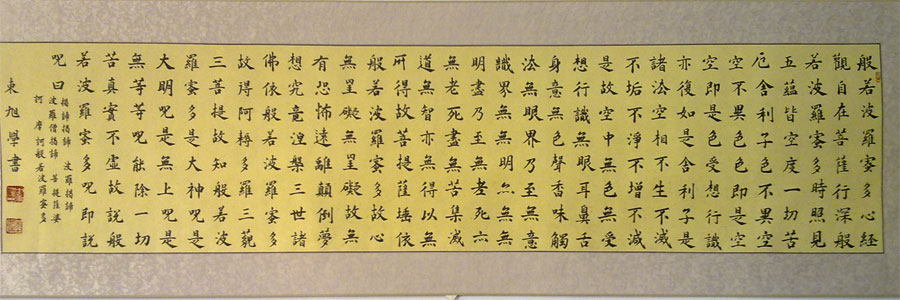 般若波羅蜜多心經
觀自在菩薩行深般
若波羅蜜多時照見
五蘊皆空度一切苦
厄舍利子色不異空
空不異色色即是空
空即是色受想行識
亦復如是舍利子是
諸法空相不生不滅
不垢不淨不增不減
是故空中無色無受
想行識無眼耳鼻舌
身意無色聲香味觸
法無眼界乃至無意
識界無無明亦無無
明盡乃至無老死亦
無老死盡無苦集滅
道無智亦無得以無
所得故菩提薩埵依
般若波羅蜜多故心
無罣礙無罣礙故無
有恐怖遠離顛倒夢
想究竟涅槃三世諸
佛依般若波羅蜜多
故得阿耨多羅三藐
三菩提故知般若波
羅蜜多是大神咒是
大明咒是無上咒是
無等等咒能除一切
苦真實不虛故說般
若波羅蜜多咒即說
咒曰
揭諦揭諦 波羅揭諦
波羅僧揭諦 菩提薩婆
訶 摩訶般若波羅蜜多
東旭學書